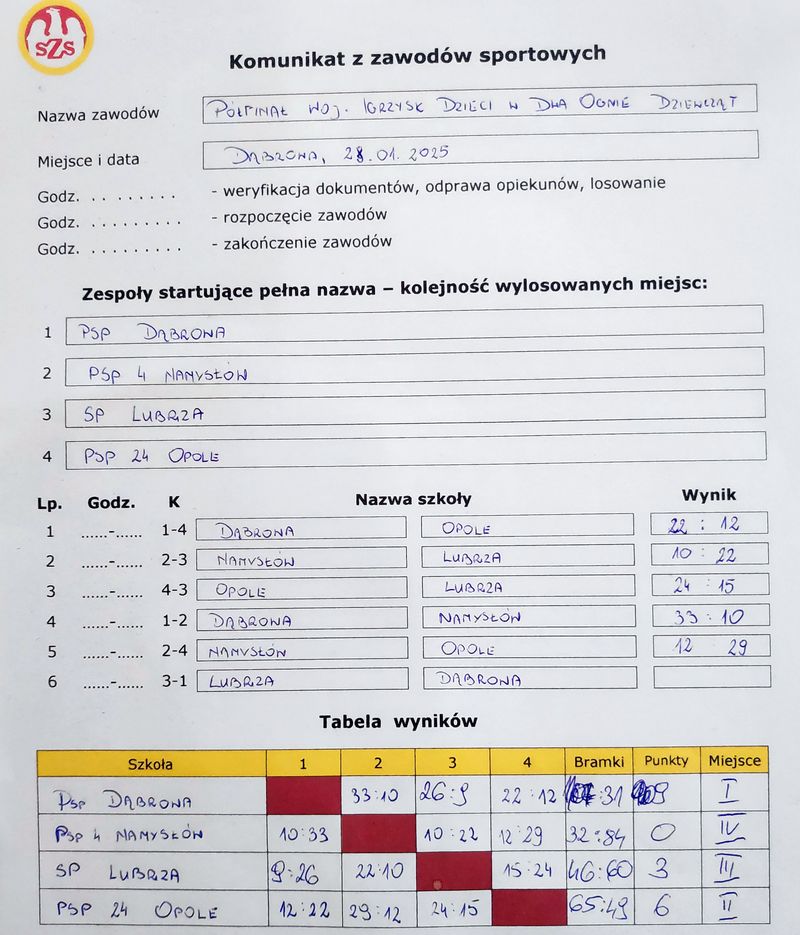 SZS
Komunikat z zawodów sportowych
Nazwa zawodów PÓŁFINAŁ WOJ. IGRZYSK DZIECI W DWA OGNIE DZIEWCZĄT
Miejsce i data DĄBROWA, 28.01.2025
Godz. . . . . . . . . - weryfikacja dokumentów, odprawa opiekunów, losowanie
Godz. . . . . . . . . . - rozpoczęcie zawodów
Godz. . . . . . . . . . - zakończenie zawodów
Zespoły startujące pełna nazwa – kolejność wylosowanych miejsc:
1 PSP DĄBROWA
2 PSP 4 NAMYSŁÓW
3 SP LUBRZA
4 PSP 24 OPOLE
Lp. Godz. K Nazwa szkoły Wynik
1 ......-...... 1-4 DĄBROWA OPOLE 22 : 12
2 ......-...... 2-3 NAMYSŁÓW LUBRZA 10 : 22
3 ......-...... 4-3 OPOLE LUBRZA 24 : 15
4 ......-...... 1-2 DĄBROWA NAMYSŁÓW 33 : 10
5 ......-...... 2-4 NAMYSŁÓW OPOLE 12 29
6 ......-...... 3-1 LUBRZA DĄBROWA
Tabela wyników
Szkoła 1 2 3 4 Bramki Punkty Miejsce
PSP DĄBROWA 33:10 26:9 22:12 :31 9 I
PSP 4 NAMYSŁÓW 10:33 10:22 12:29 32:84 0 IV
SP LUBRZA 9:26 22:10 15:24 46:60 3 III
PSP 24 OPOLE 12:22 29:12 24:15 65:49 6 II